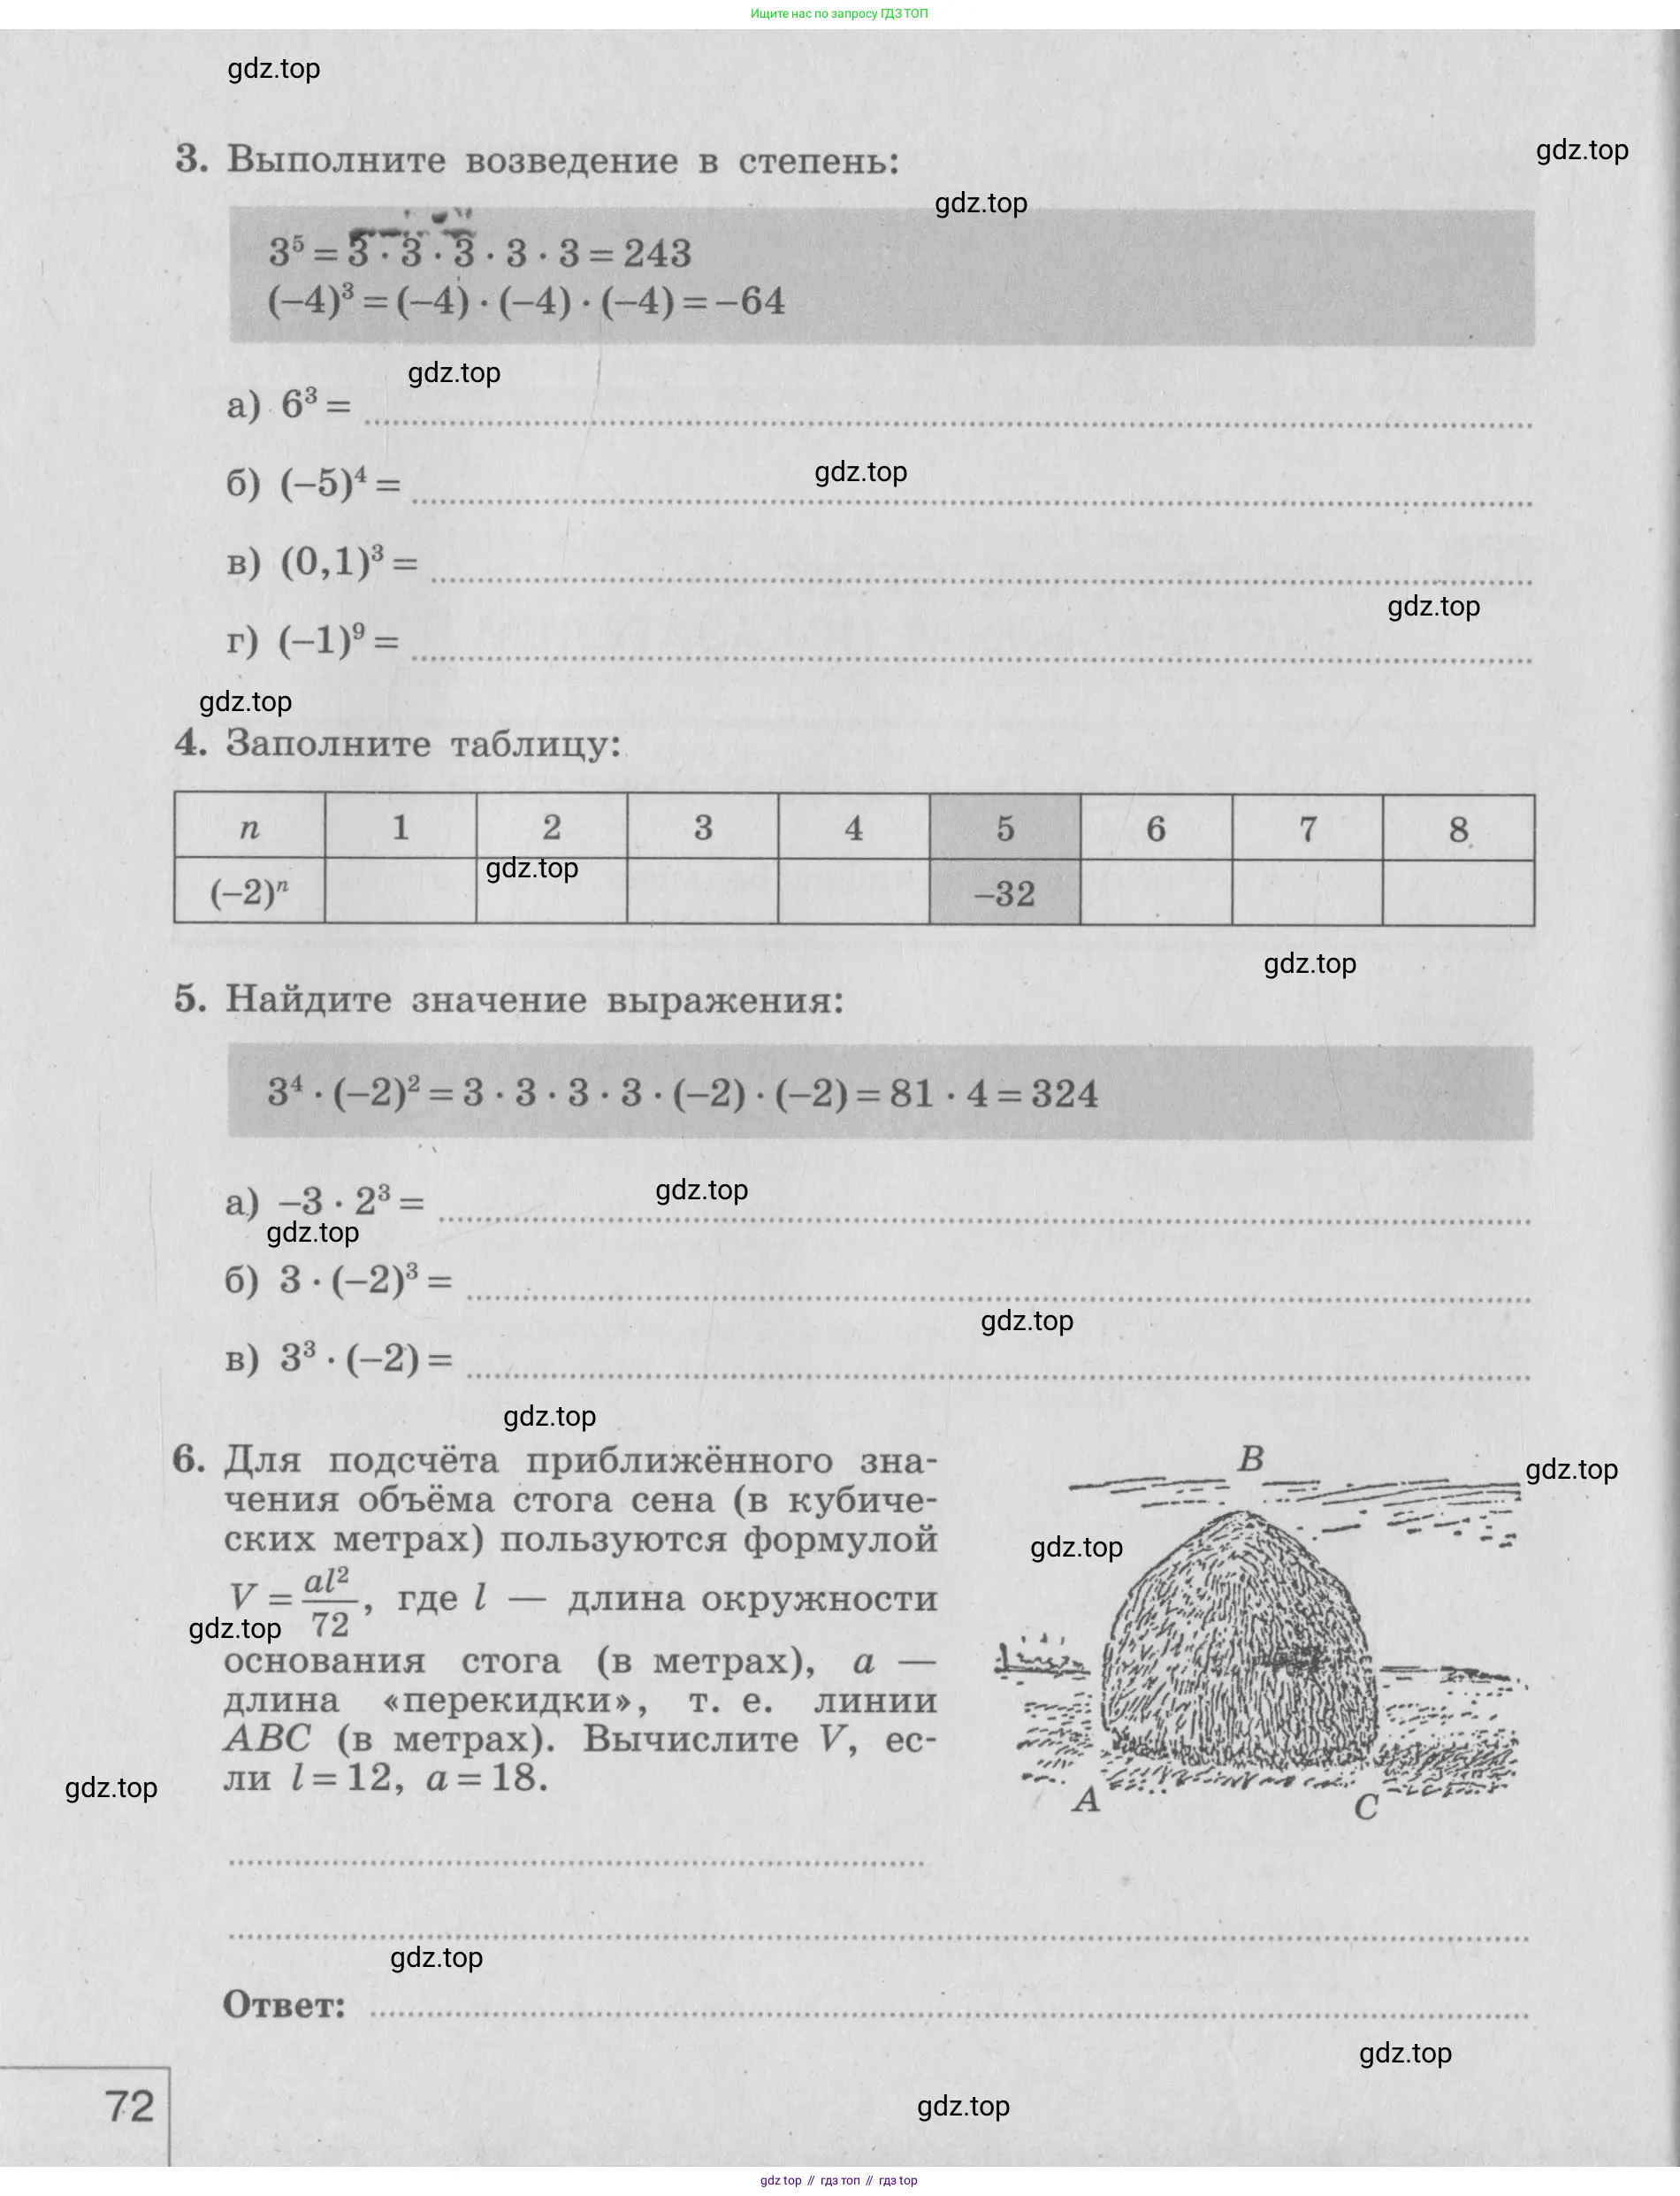 Ищите нас по запросу ГДЗ ТОП
gdz.top
gdz.top
3. Выполните возведение в степень:
gdz.top
3⁵ = 3 · 3 · 3 · 3 · 3 = 243
(–4)³ = (–4) · (–4) · (–4) = –64
gdz.top
а) 6³ =
gdz.top
б) (–5)⁴ =
в) (0,1)³ =
gdz.top
г) (–1)⁹ =
gdz.top
4. Заполните таблицу:
n 1 2 3 4 5 6 7 8
gdz.top
(–2)ⁿ –32
gdz.top
5. Найдите значение выражения:
3⁴ · (–2)² = 3 · 3 · 3 · 3 · (–2) · (–2) = 81 · 4 = 324
gdz.top
а) –3 · 2³ =
gdz.top
б) 3 · (–2)³ =
gdz.top
в) 3³ · (–2) =
gdz.top
6. Для подсчёта приближённого зна-
чения объёма стога сена (в кубиче-
ских метрах) пользуются формулой
V = al²/72, где l — длина окружности
gdz.top
основания стога (в метрах), a —
длина «перекидки», т. е. линии
ABC (в метрах). Вычислите V, ес-
ли l = 12, a = 18.
gdz.top
B
gdz.top
gdz.top
A
C
gdz.top
Ответ:
gdz.top
gdz.top
72
gdz top // гдз топ // гдз top